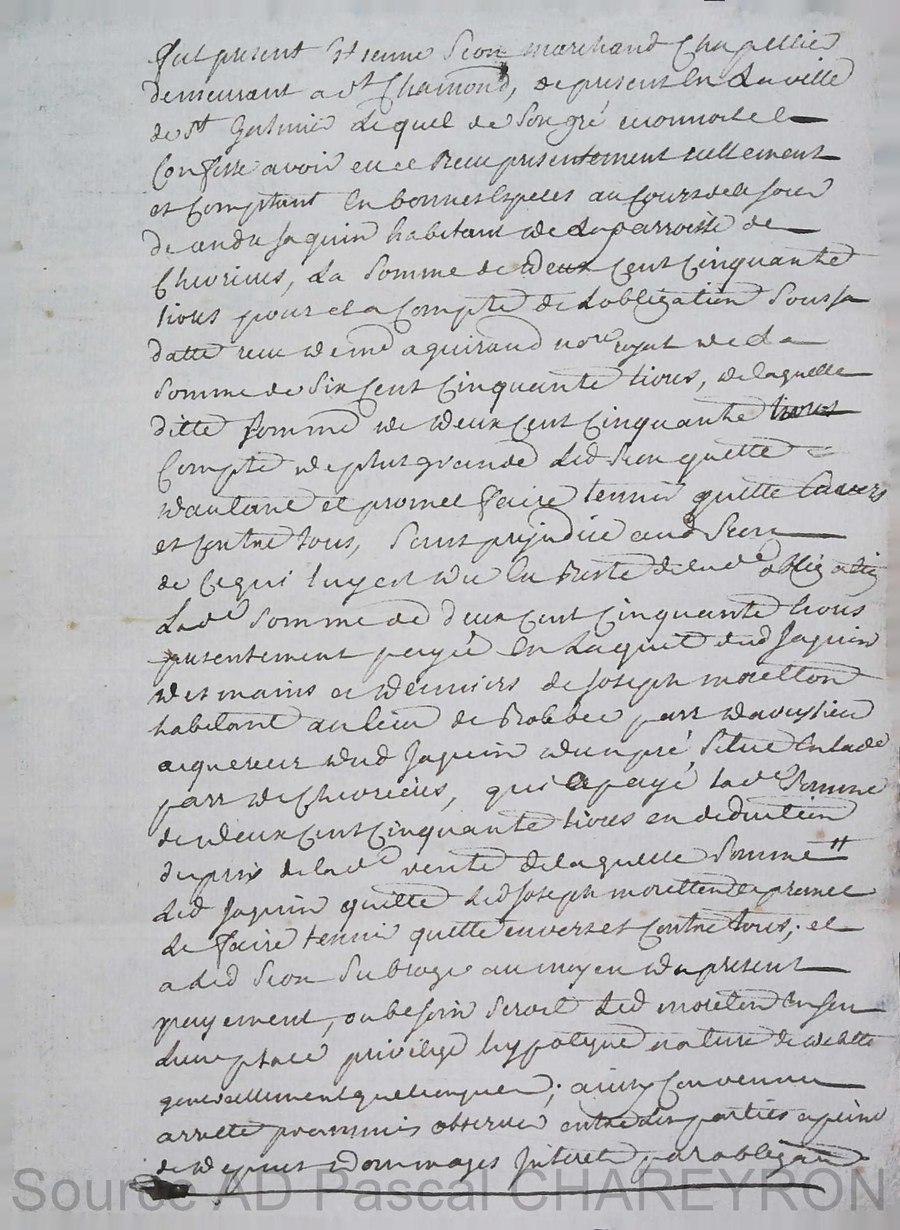 Fut present Etienne Seon marchand Chapellier
demeurant a st Chamond, de present en La ville
de st Galmier Lequel de Son gré reconnoit et
Confesse avoir eu et Receu presentement reellement
et Comptant En bonnes Especes au Cours de ce jour
de andré jaquin habitant de La parroisse de
Chevrieres, La Somme de deux Cent Cinquante
livres pour et a Compte de Lobligation Sous sa
datte receu de me aguiraud nore royal de La
Somme de Six Cent Cinquante livres, de laquelle
ditte Somme de deux Cent Cinquante livres
Compte de plus grande Led Seon quitte
dautant et promet faire tennir quitte Envers
et Contre tous, Sans prejudice aud Seon
de Ce qui luy est du En Reste de lad obligation
Lade Somme de deux Cent Cinquante livres
presentement payée En Laquit dud Jaquin
des mains et deniers de Joseph moretton
habitant au lieu de parr
aquereur dud Jaquin dun pré Situé En lade
parr de Chevrieres, qui a payé lade Somme
de deux Cent Cinquante livres en deduction
du prix de lade vente de laquelle Somme
Led Jaquin quitte Led Joseph moretton et promet
Le faire tennir quitte envers et Contre tous; et
a Led Seon Subrogé au moyen du present
payement, ou besoin Seroit Led moretton En Son
Lieu place privilege hypoteque nature de dette
generallement quelconques; ainsy Convenu
arretté promis observer entre Les parties a peine
de depens Dommages Interet par obligaon
Source AD Pascal CHAREYRON